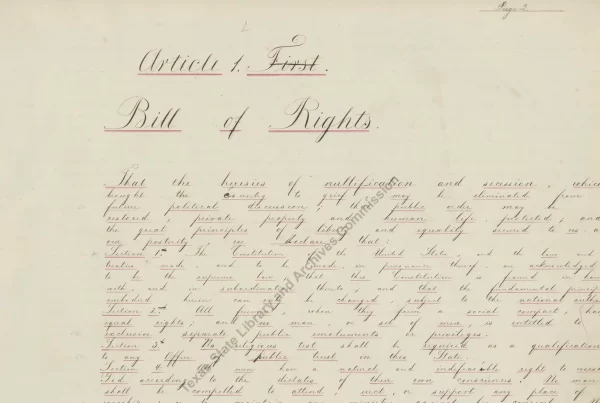 Page 2
Article 1. First.
Bill of Rights.
That the heresies of nullification and secession, which
brought the country to grief may be eliminated from
future political discussion; that public order may be
restored, private property and human life protected, and
the great principles of liberty and equality secured to us and
our posterity, we declare that:
Section 1st The Constitution of the United States, and the laws and
treaties made, and to be made, in pursuance thereof, are acknowledged
to be the supreme law; that this Constitution is framed in
with, and in subordination thereto; and that the fundamental
embodied herein can only be changed, subject to the national
Section 2nd All freemen, when they form a social compact, have
equal rights; and no man, or set of men, is entitled to
exclusive separate public emoluments or privileges.
Section 3d No religious test shall be required as a qualification
to any Office or public trust in this State.
Section 4 All men have a natural and indefeasible right to
God according to the dictates of their own consciences. No man
shall be compelled to attend, erect, or support any place of
Texas State Library and Archives Commission